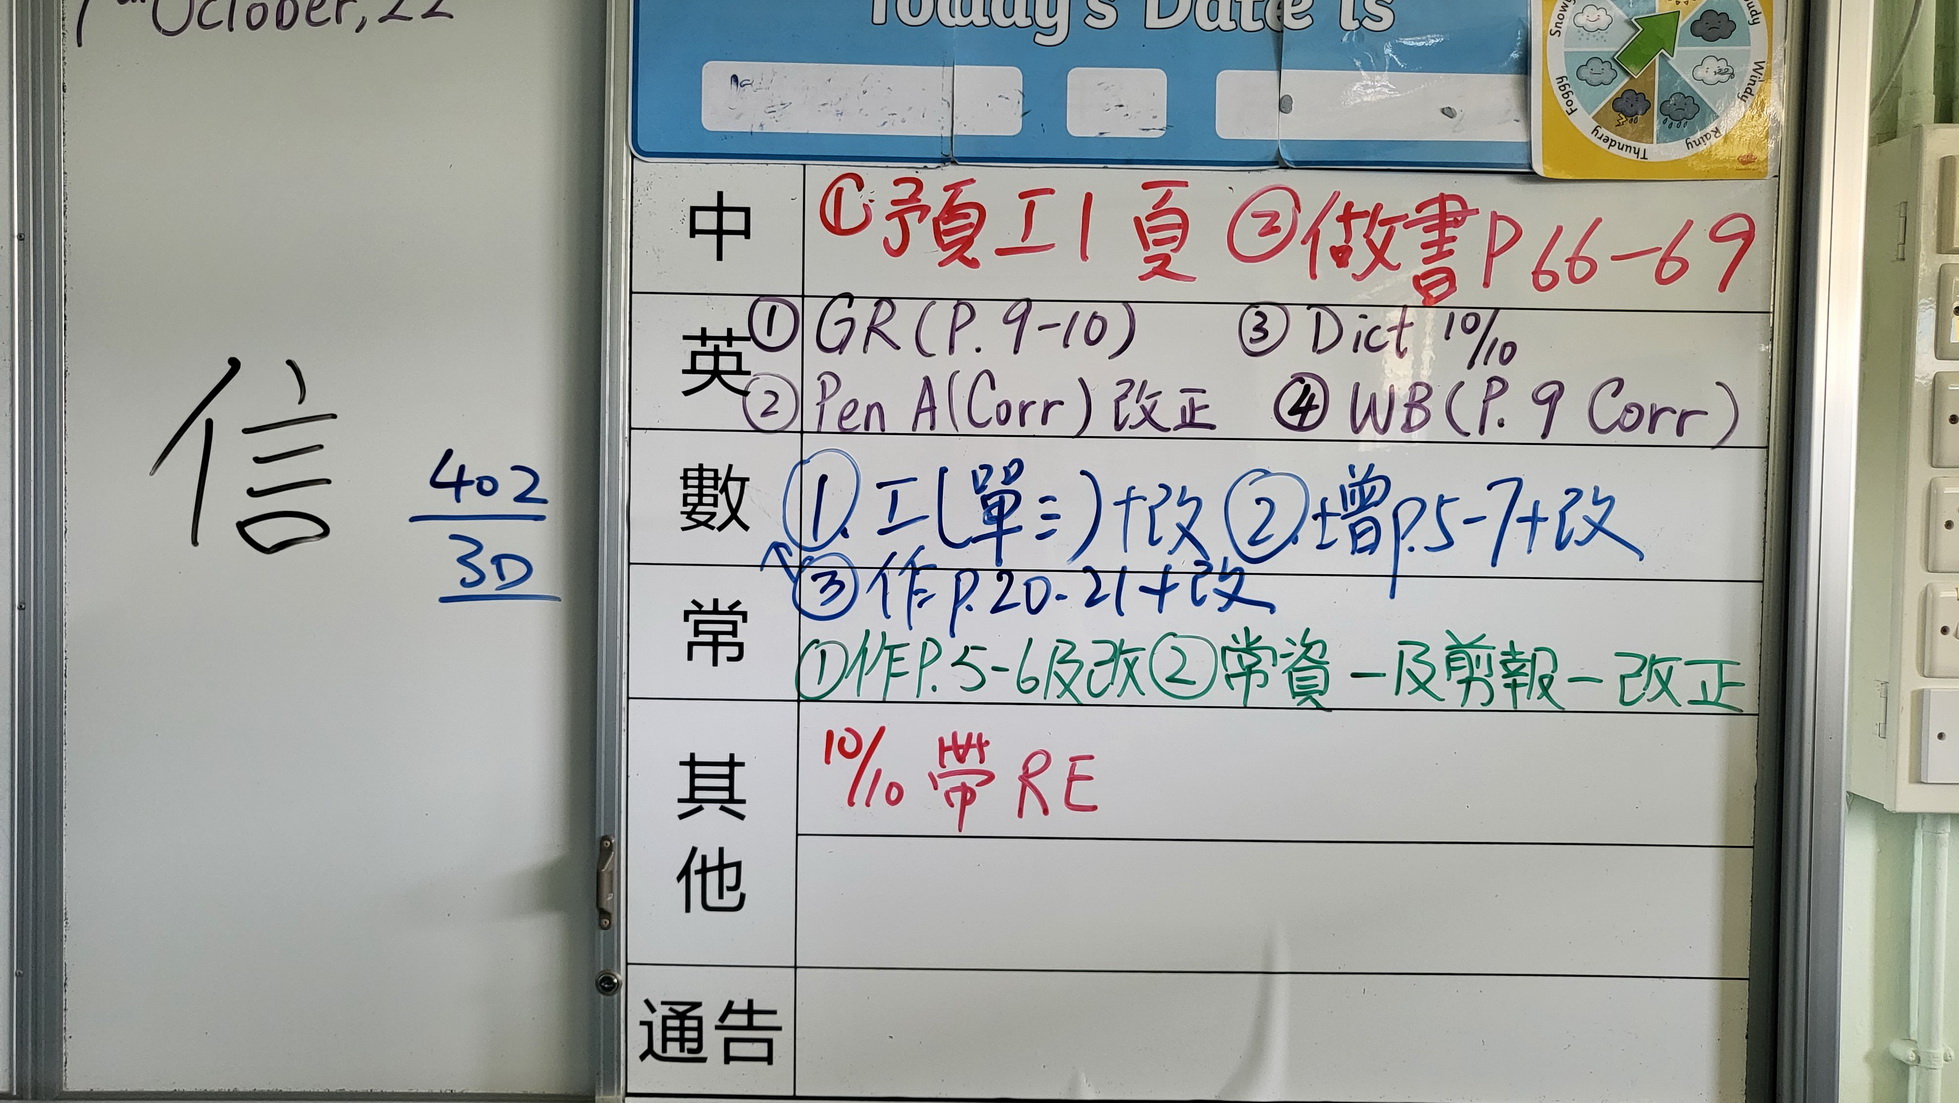 October, 22
Today's Date is
Snowy
Windy
Rainy
Thundery
Foggy
信
402
3D
中
①預工1頁 ②做書P66-69
英
①GR(P.9-10) ③Dict 10/10
②Pen A(Corr)改正 ④WB(P.9 Corr)
數
①.工(單三)+改 ②.增P.5-7+改
③作P.20-21+改
常
①作P.5-6及改②常資一及剪報一改正
其他
10/10 帶RE
通告